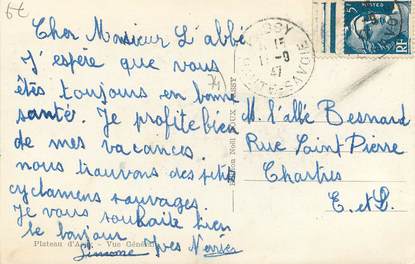 6€
Cher Monsieur L'abbé
J'espère que vous
êtes toujours en bonne
santé. Je profite bien
de mes vacances.
nous trouvons des petits
cyclamens sauvages.
Je vous souhaite bien
le bonjour
Simone Yves
Plateau d'Assy - Vue Générale
74
Edition Noël
17-9
47
POSTES
RF
M. l'abbé Besnard
Rue Saint Pierre
Chartres
E. et L.